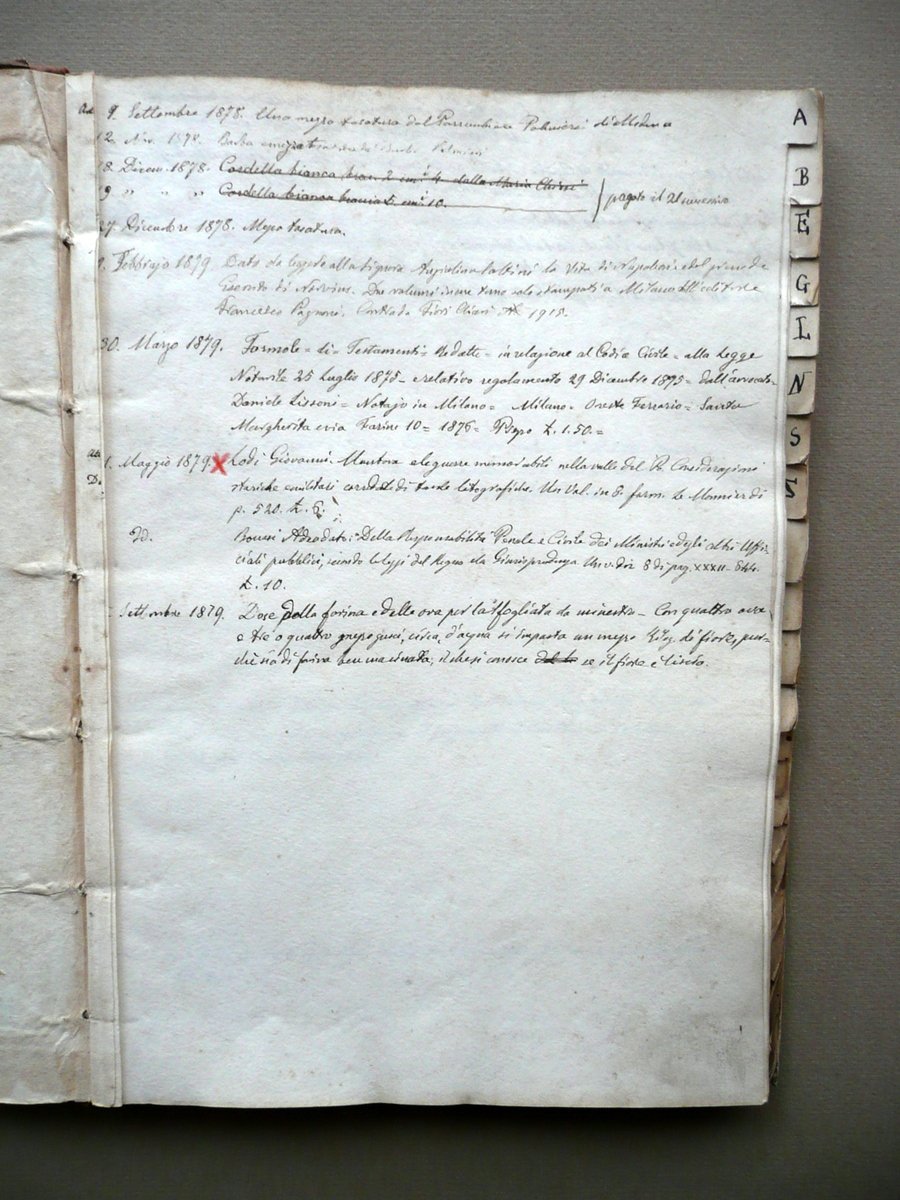 9. Settembre 1878. Una mezza tosatura dal Parrucchiere Palmieri di Modena
12. Nov. 1878. Barba
18. Dicem. 1878. Cordella bianca brac. 2 cmi 4. dalla Maria
9 " " " Cordella bianca braccia cmi 10.
pagato il 21 successivo
27. Dicembre 1878. Mezza tosatura.
Febbrajo 1879. Dato da leggere alla Signora la Vita di Napoleone del
di Norvins. Due volumi in uno stampati a Milano dall'editore
Francesco Pagnoni. Contrada Fiori Chiari N. 1918.
30. Marzo 1879. Formole = di = Testamenti = Redatte = in relazione al Codice Civile = alla Legge
Notarile 25 Luglio 1875 = e relativo regolamento 29 Dicembre 1875 = dall'avvocato
Daniele Lissoni = Notajo in Milano = Milano. Oreste Ferrario = Santa
Margherita 10 = 1876 = Prezzo £. 1.50. =
1. Maggio 1879. X Lodi Giovanni. Mantova e le guerre memorabili nella valle del Po Considerazioni
storiche militari corredate di tavole litografiche. Un Vol. in 8. form. Le Monnier di
p. 520. £. 6.
Id. Bonasi Adeodato: Della Responsabilità Penale e Civile dei Ministri e degli altri Uffi-
ciali pubblici, secondo le leggi del Regno e la Giurisprudenza Un v. di 8 di pag. XXXII - 644.
£. 10.
Settembre 1879. Dose della farina e delle ova per la sfogliata da minestra = Con quattro ova
e tre o quattro gusci, circa, d'acqua si impasta un mezzo Kilg. di fiore, pur-
chè sia di farina ben macinata, il che si conosce se il fiore è liscio.
A
B
E
G
L
N
S